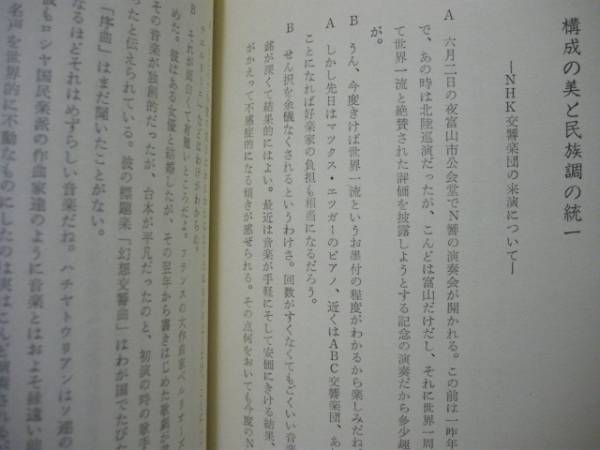 構成の美と民族調の統一
―NHK交響楽団の来演について―
A 六月二日の夜富山市公会堂でN響の演奏会が開かれる。この前は一昨年
で、あの時は北陸巡演だったが、こんどは富山だけだし、それに世界一周
て世界一流と絶賛された評価を披露しようとする記念の演奏だから多少趣
が。
B うん、今度きけば世界一流というお墨付の程度がわかるから楽しみだね
A しかし先日はマックス・エツガーのピアノ、近くはABC交響楽団、あ
ことになれば好楽家の負担も相当になるだろう。
B せん択を余儀なくされるというわけさ。回数がすくなくてもごくいい音
銘が深くて結果的にはよい。最近は音楽が手軽にそして安価にきける結果、
がかえって不感症的になる傾きが感ぜられる。その点何をおいても今度のN
B それが面白くて有難いところだよ。フランスの大作曲家ベルリオーズ
めた。彼はある女優と結婚したが、その翌年から書きはじめた歌劇が
その音楽が独創的だったが、台本が平凡だったのと、初演の時の歌手
ったと伝えられている。彼の標題楽「幻想交響曲」はわが国でたびた
「序曲」はまだ聞いたことがない。
なるほどそれはめずらしい音楽だね。ハチャトゥリアンはソ連の
もロシヤ国民楽派の作曲家達のように音楽とはおよそ縁遠い
名声を世界的に不動なものにしたのは実はこんど演奏される